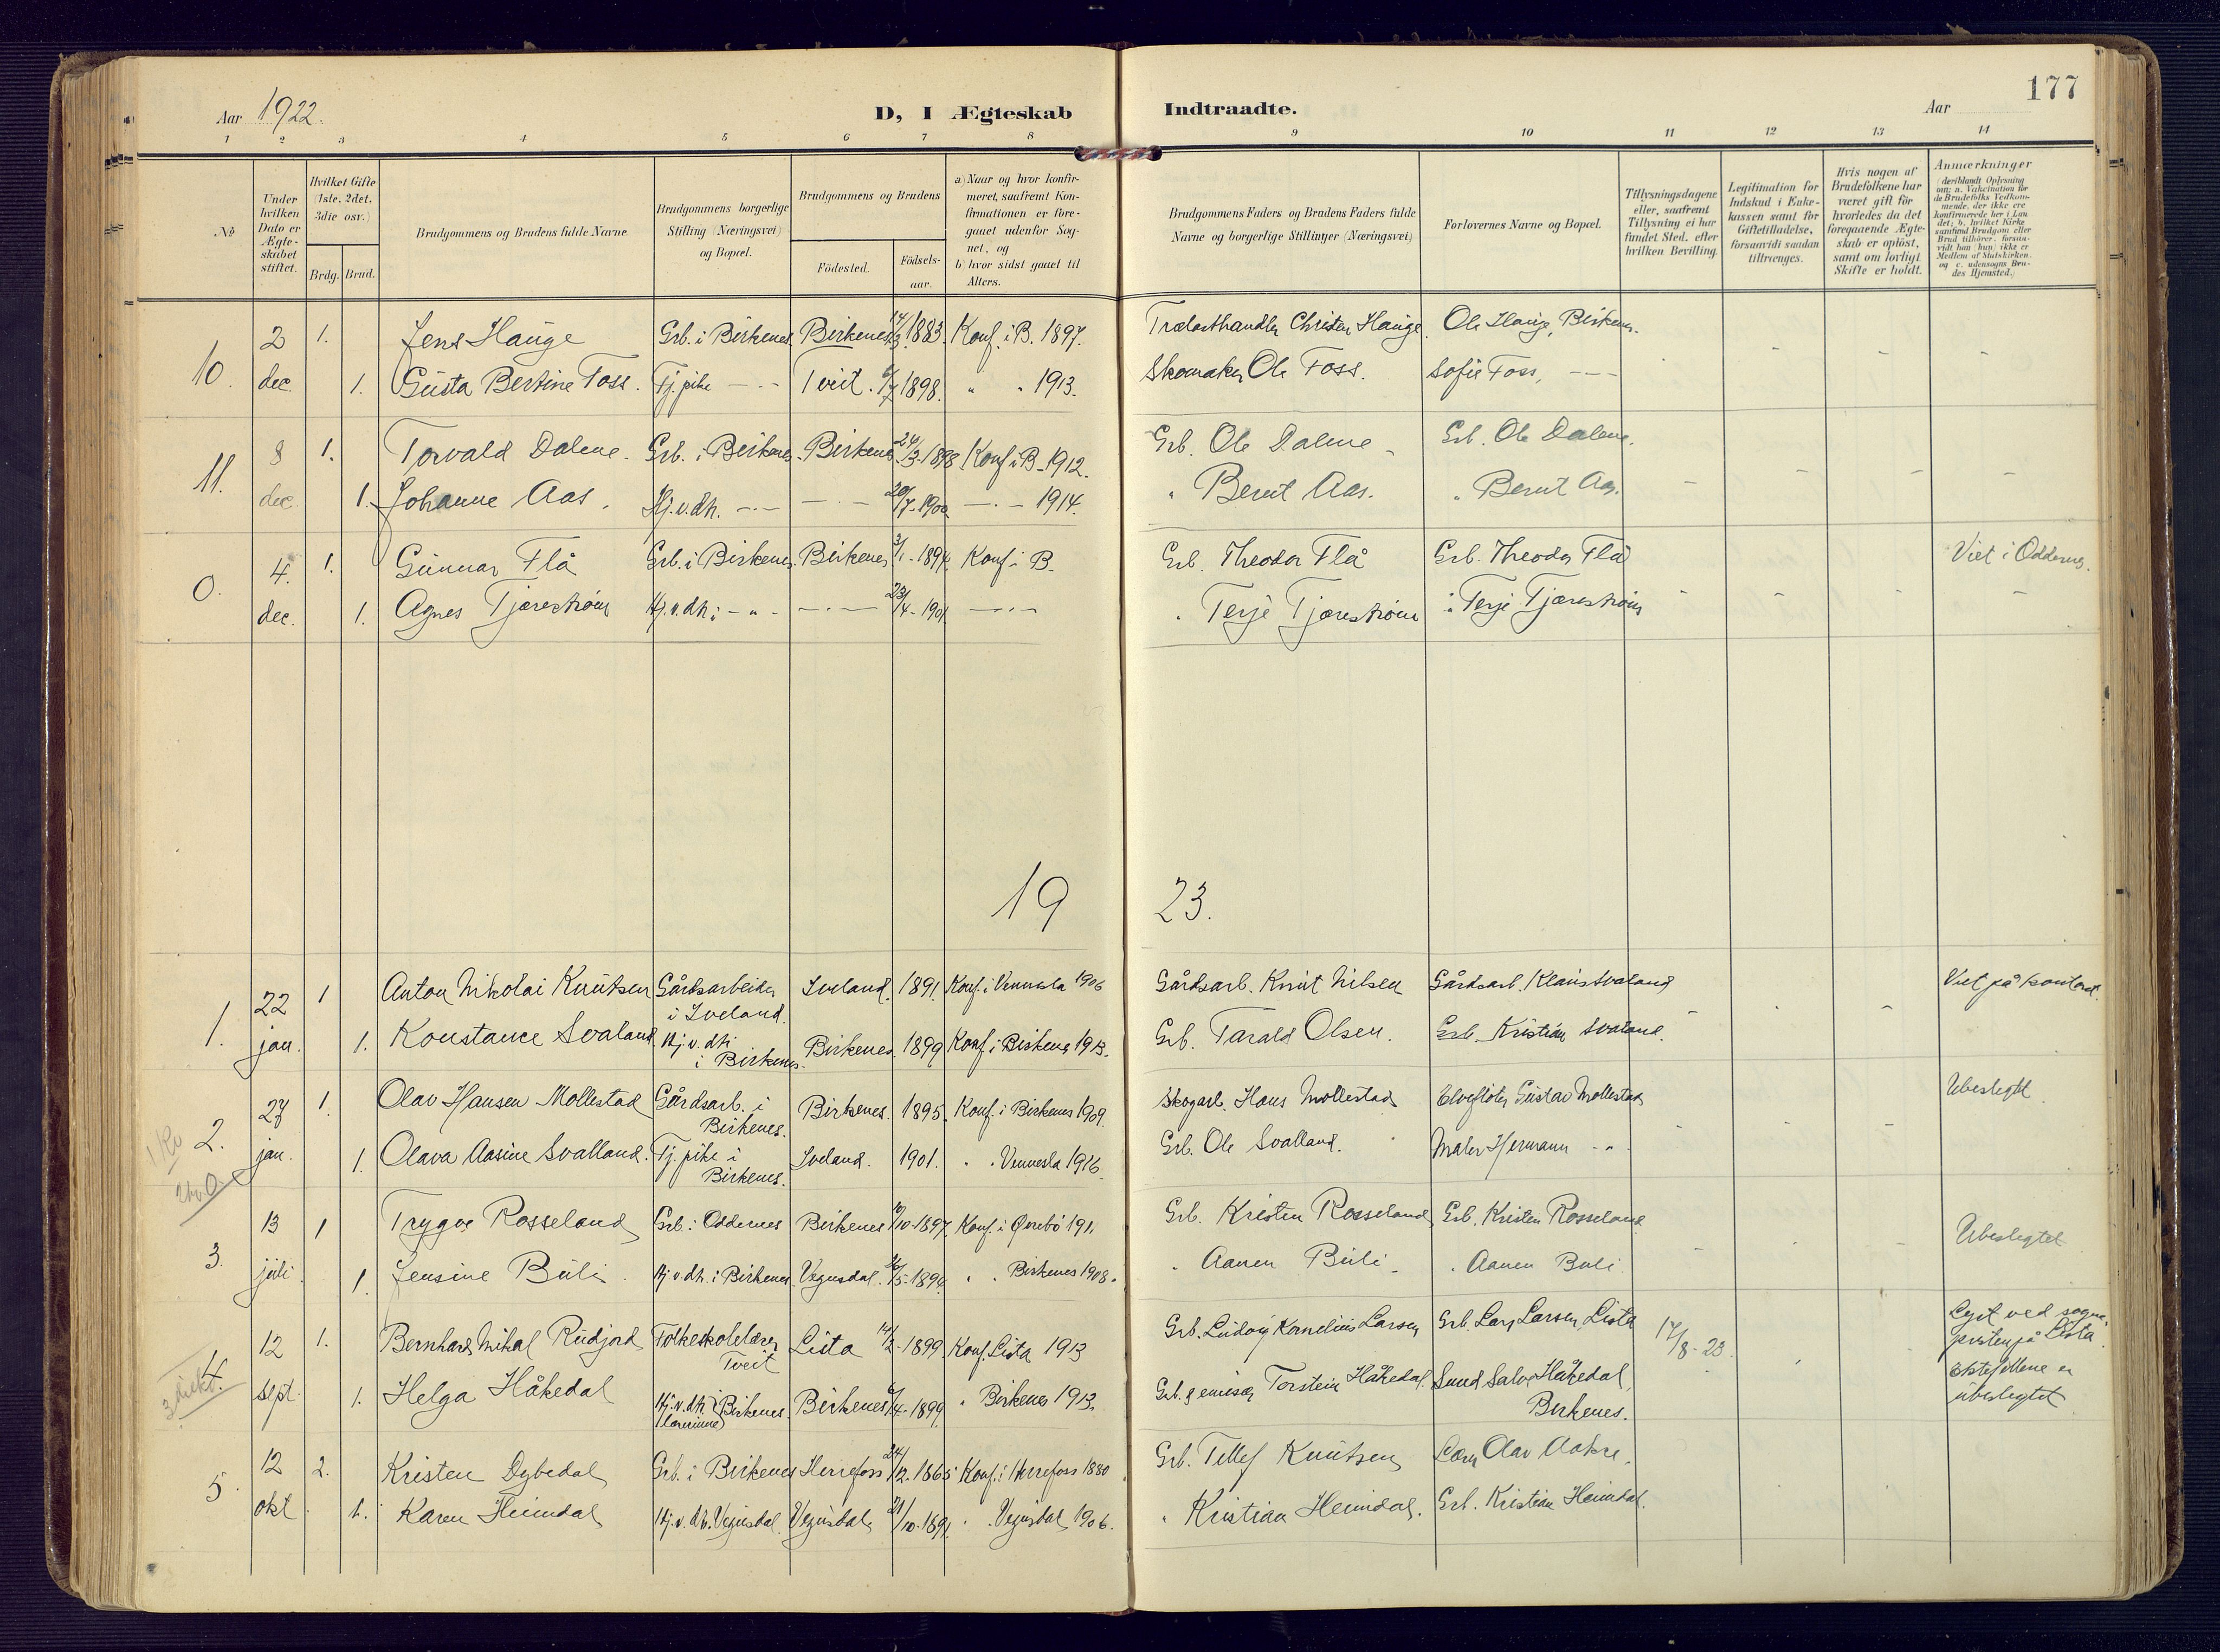 Aar 1922.
D, I Ægteskab Indtraadte.
Aar
177
1 2 3 4 5 6 7 8 9 10 11 12 13 14
No
Under hvilken Dato er Ægteskabet stiftet.
Hvilket Gifte (1ste, 2det, 3die osv.)
Brdg. Brud.
Brudgommens og Brudens fulde Navne.
Brudgommens borgerlige Stilling (Næringsvei) og Bopæl.
Brudgommens og Brudens
Födested.
Födselsaar.
a) Naar og hvor konfirmeret, saafremt Konfirmationen er foregaaet udenfor Sognet, og
b) hvor sidst gaaet til Alters.
Brudgommens Faders og Brudens Faders fulde Navne og borgerlige Stillinger (Næringsvei)
Forlovernes Navne og Bopæl.
Tillysningsdagene eller, saafremt Tillysning ei har fundet Sted, efter hvilken Bevilling.
Legitimation for Indskud i Enkekassen samt for Giftetilladelse, forsaavidt saadan tiltrænges.
Hvis nogen af Brudefolkene har været gift för hvorledes da det foregaaende Ægteskab er oplöst, samt om lovligt Skifte er holdt.
Anmærkninger
(deriblandt Oplysning om: a. Vakcination for de Brudefolks Vedkommende, der ikke ere konfirmerede her i Landet; b. hvilket Kirkesamfund Brudgom eller Brud tilhörer, forsaavidt han (hun) ikke er Medlem af Statskirken. og c. udensogns Brudes Hjemsted.)
10. 2 dec. 1. Jens Hauge Grb. i Birkenes. Birkenes 1883. Konf. i B. 1897. Trælasthandler Christen Hauge Ole Hauge, Birkenes.
1. Gusta Bertine Foss. Tj. pike — Tveit. 1898. " " 1913. Skomaker Ole Foss. Sofie Foss, — —
11. 8 dec. 1. Torvald Dalene. Grb. i Birkenes. Birkenes 24/3-1898 Konf i B. 1912. Grb. Ole Dalene Grb. Ole Dalene.
1. Johanne Aas. Hj.v.dh. — — 20/7-1900 — 1914. " Berut Aas. " Berut Aas.
0. 4. dec. 1. Gunnar Flå Grb. i Birkenes. Birkenes 3/1-1894. Konf i B. Grb. Theodor Flå Grb. Theodor Flå Viet i Oddernes.
1. Agnes Tjærestrøm Hj.v.dh. i — " — — 23/4-1901 — " Terje Tjærestrøm " Terje Tjærestrøm
19 23.
1. 22 jan. 1 Anton Nikolai Knutsen Gårdsarbeider i Iveland. Iveland. 1891. Konf. i Vennesla 1906 Gårdsarb. Knut Nilsen Gårdsarb. Klaus Svaland Viet på kontoret.
1. Konstance Svaland Hj.v.dh. i Birkenes. Birkenes. 1899 Konf i Birkenes 1913. Grb. Tarald Olsen. Grb. Kristian Svaland.
2. 27 jan. 1. Olav Hansen Mollestad Gårdsarb. i Birkenes. Birkenes. 1895. Konf. i Birkenes 1909. Skogarb. Hans Mollestad Elvefløter Gustav Mollestad Ubeslegtet
1. Olava Aasine Svalland. Tj. pike i Birkenes. Iveland. 1901. " " Vennesla 1916. Grb. Ole Svalland. Maler Hermann — " —
3. 13 juli. 1 Trygve Rosseland Grb. i Oddernes Birkenes 10-1897. Konf. i Øvrebö 191 Grb. Kristen Rosseland Grb. Kristen Rosseland Ubeslegtet
1 Jensine Buli. Hj.v.dh. i Birkenes. Vegusdal. 5-1894. " " Birkenes 1908. " Aanen Buli. " Aanen Buli
4. 12 sept. 1. Bernhard Mikal Rudjord Folkeskolelærer Tveit Lista 2-1899 Konf. Lista 1913 Grb. Ludvig Kornelius Larsen Grb. Lars Larsen, Lista 17/8-23. Lyst ved sogneprsten på Lista. Ektefellene er ubeslegtet
3 direkt.
1. Helga Håkedal Hj.v.dh i Birkenes. (lærerinne) Birkenes 4-1899 " Birkenes 1913. Grb. & emisær Torstein Håkedal. Smed Salve Håkedal, Birkenes.
5. 12 okt. 2. Kristen Dybedal Grb. i Birkenes Herrefoss 24/12. 1865 Konf. i Herrefoss 1880 Grb. Tellef Knutsen Lærer Olav Aakre.
1. Karen Heimdal Hj.v.dh. Vegusdal. Vegusdal 21/10-1891. " " Vegusdal 1906. " Kristian Heimdal. Grb. Kristian Heimdal.